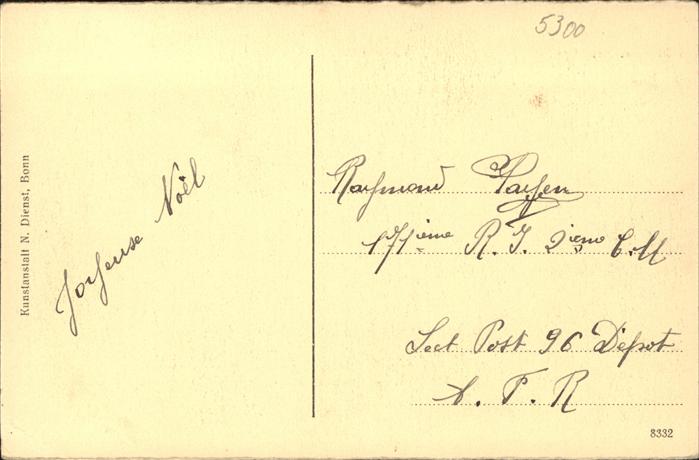 5300
Kunstanstalt N. Dienst, Bonn
Joyeuse Noël
Raymond Payen
171ième R. I. 2ième C. M
Sect Post 96 Dépot
A. F. R
8332